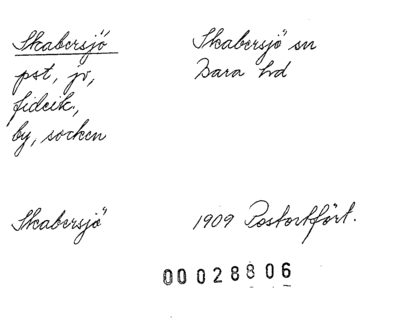 Skabersjö
pst, jv,
fideik.,
by, socken
Skabersjö sn
Bara hd
Skabersjö
1909 Postortfört.
00028806